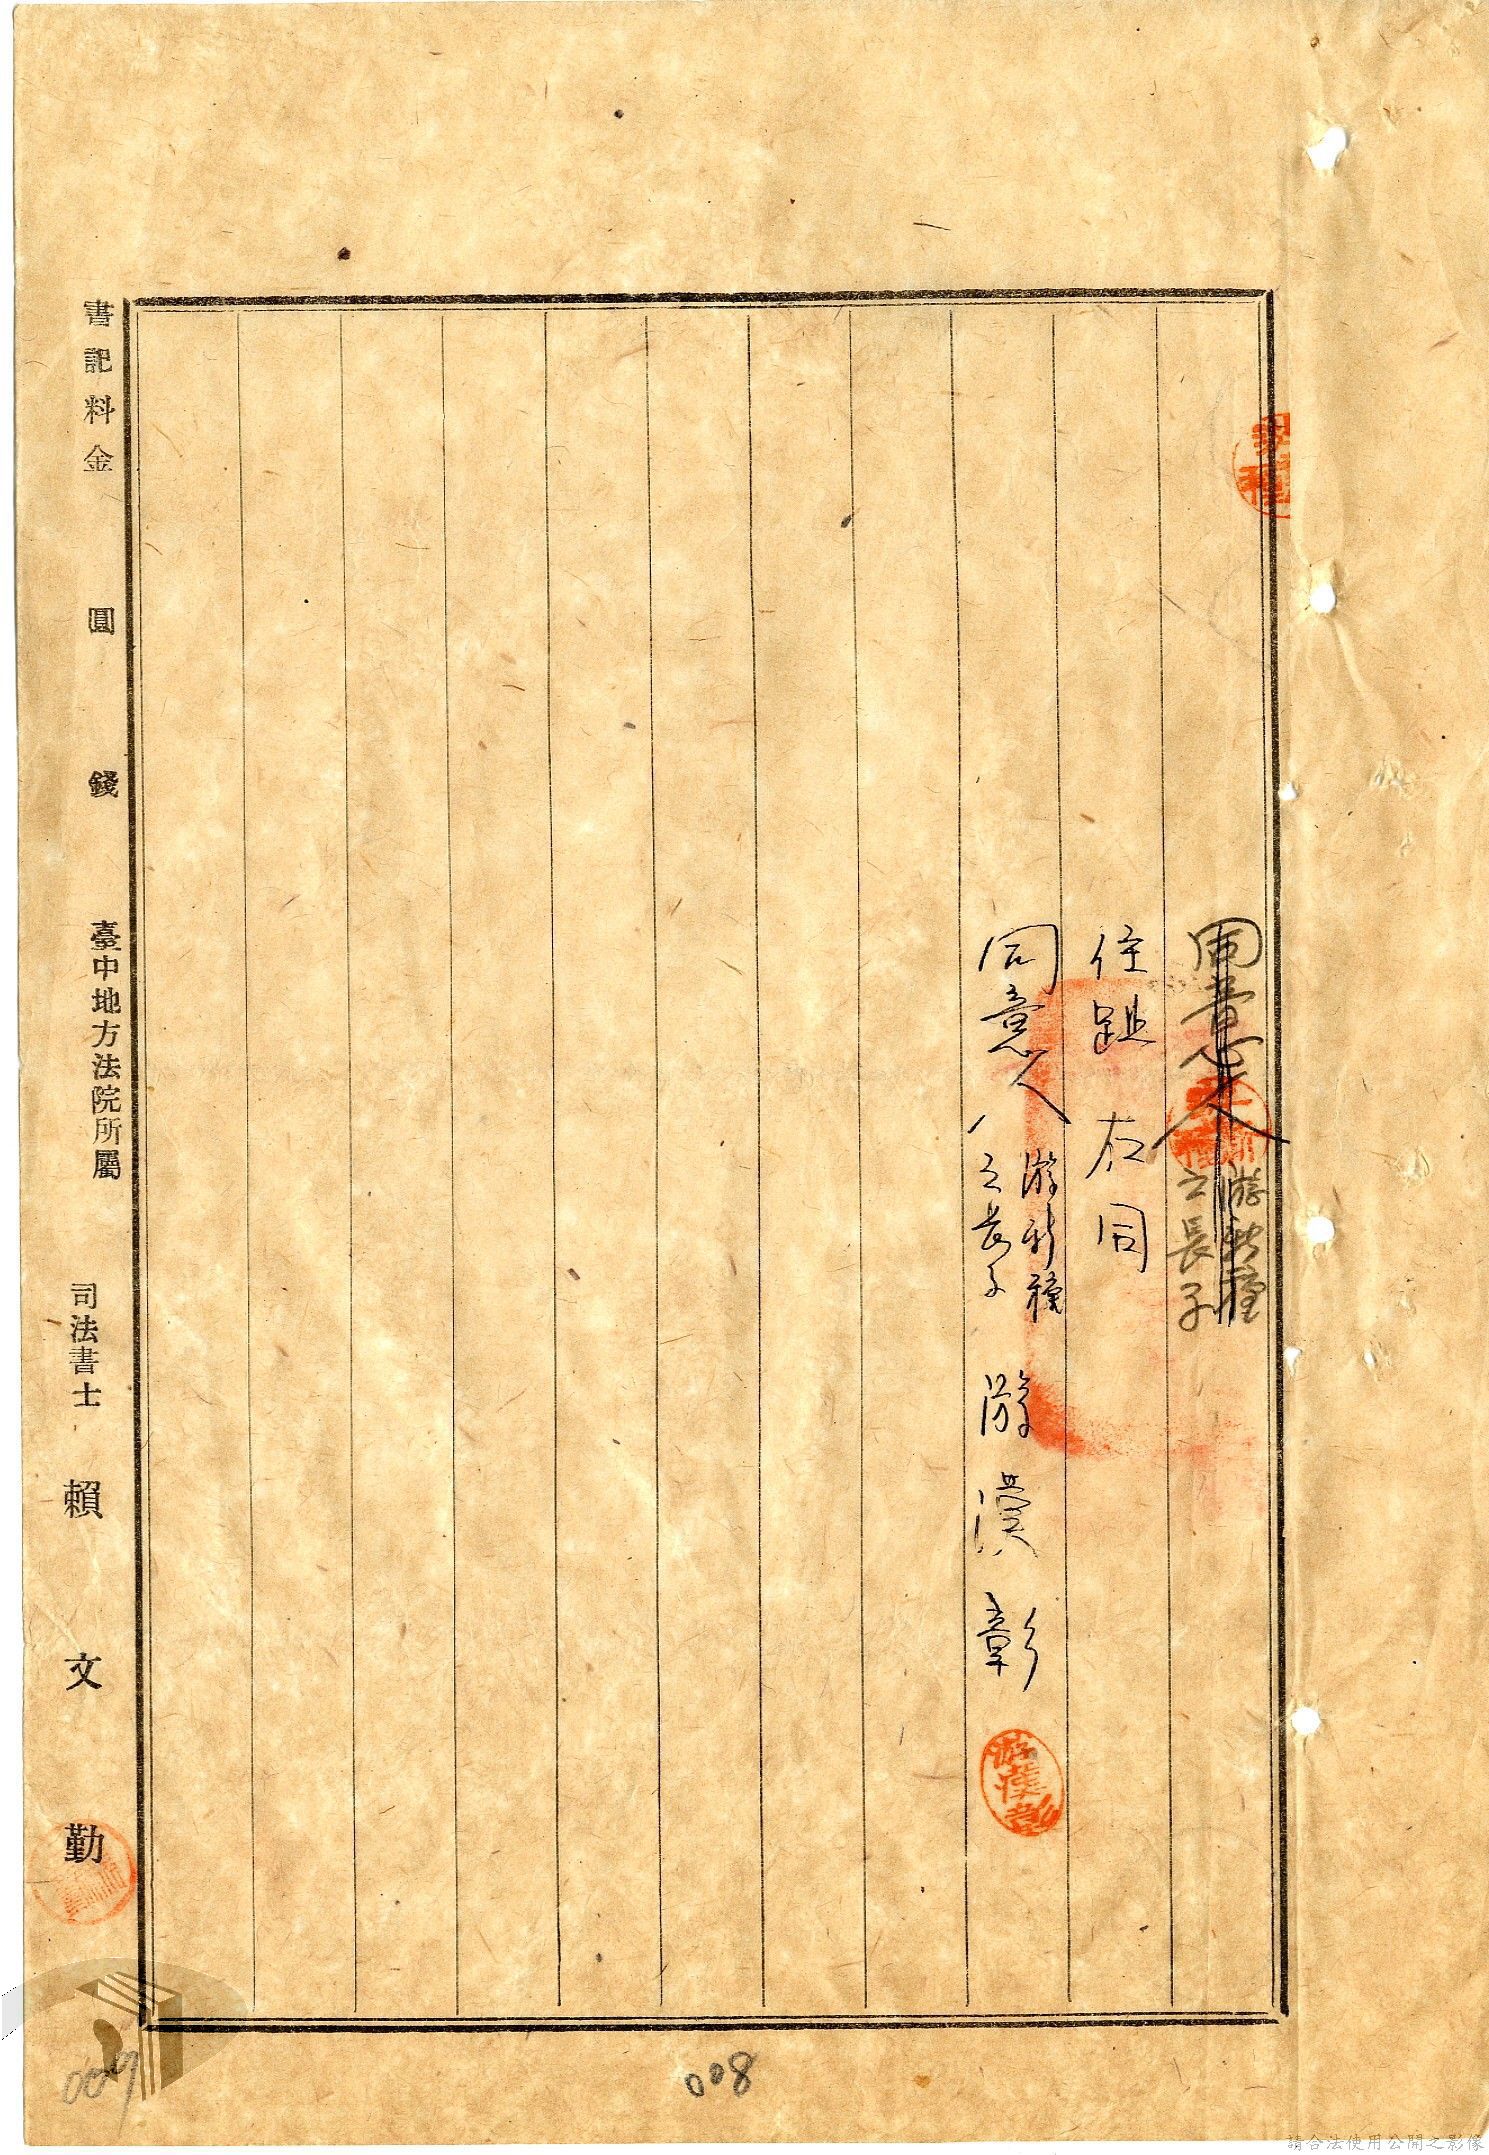 同意人 游新種之長子
住趾 右同
同意人 游新種之長子 游漢彰
游漢彰
書記料金 圓 錢 臺中地方法院所屬 司法書士 賴文勤
008
009
請合法使用公開之影像